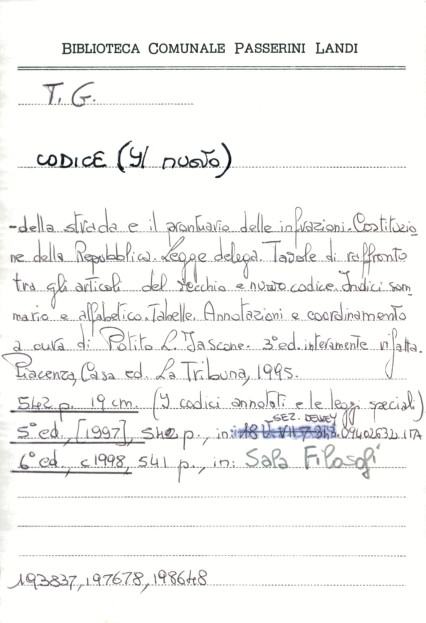 BIBLIOTECA COMUNALE PASSERINI LANDI
T. G.
CODICE (Il nuovo)
-della strada e il prontuario delle infrazioni. Costituzio=
ne della Repubblica. Legge delega. Tavole di raffronto
tra gli articoli del vecchio e nuovo codice. Indici som=
mario e alfabetico. Tabelle. Annotazioni e coordinamento
a cura di Potito L. Iascone. 3ª ed. interamente rifatta.
Piacenza, Casa ed. La Tribuna, 1995.
542 p. 19 cm. (I codici annotati e le leggi speciali)
SEZ. DEWEY
5ª ed., [1997], 542 p., in: 343.09402632 ITA
6ª ed., c1998, 541 p., in: Sala Filosofi
193837, 197678, 198648